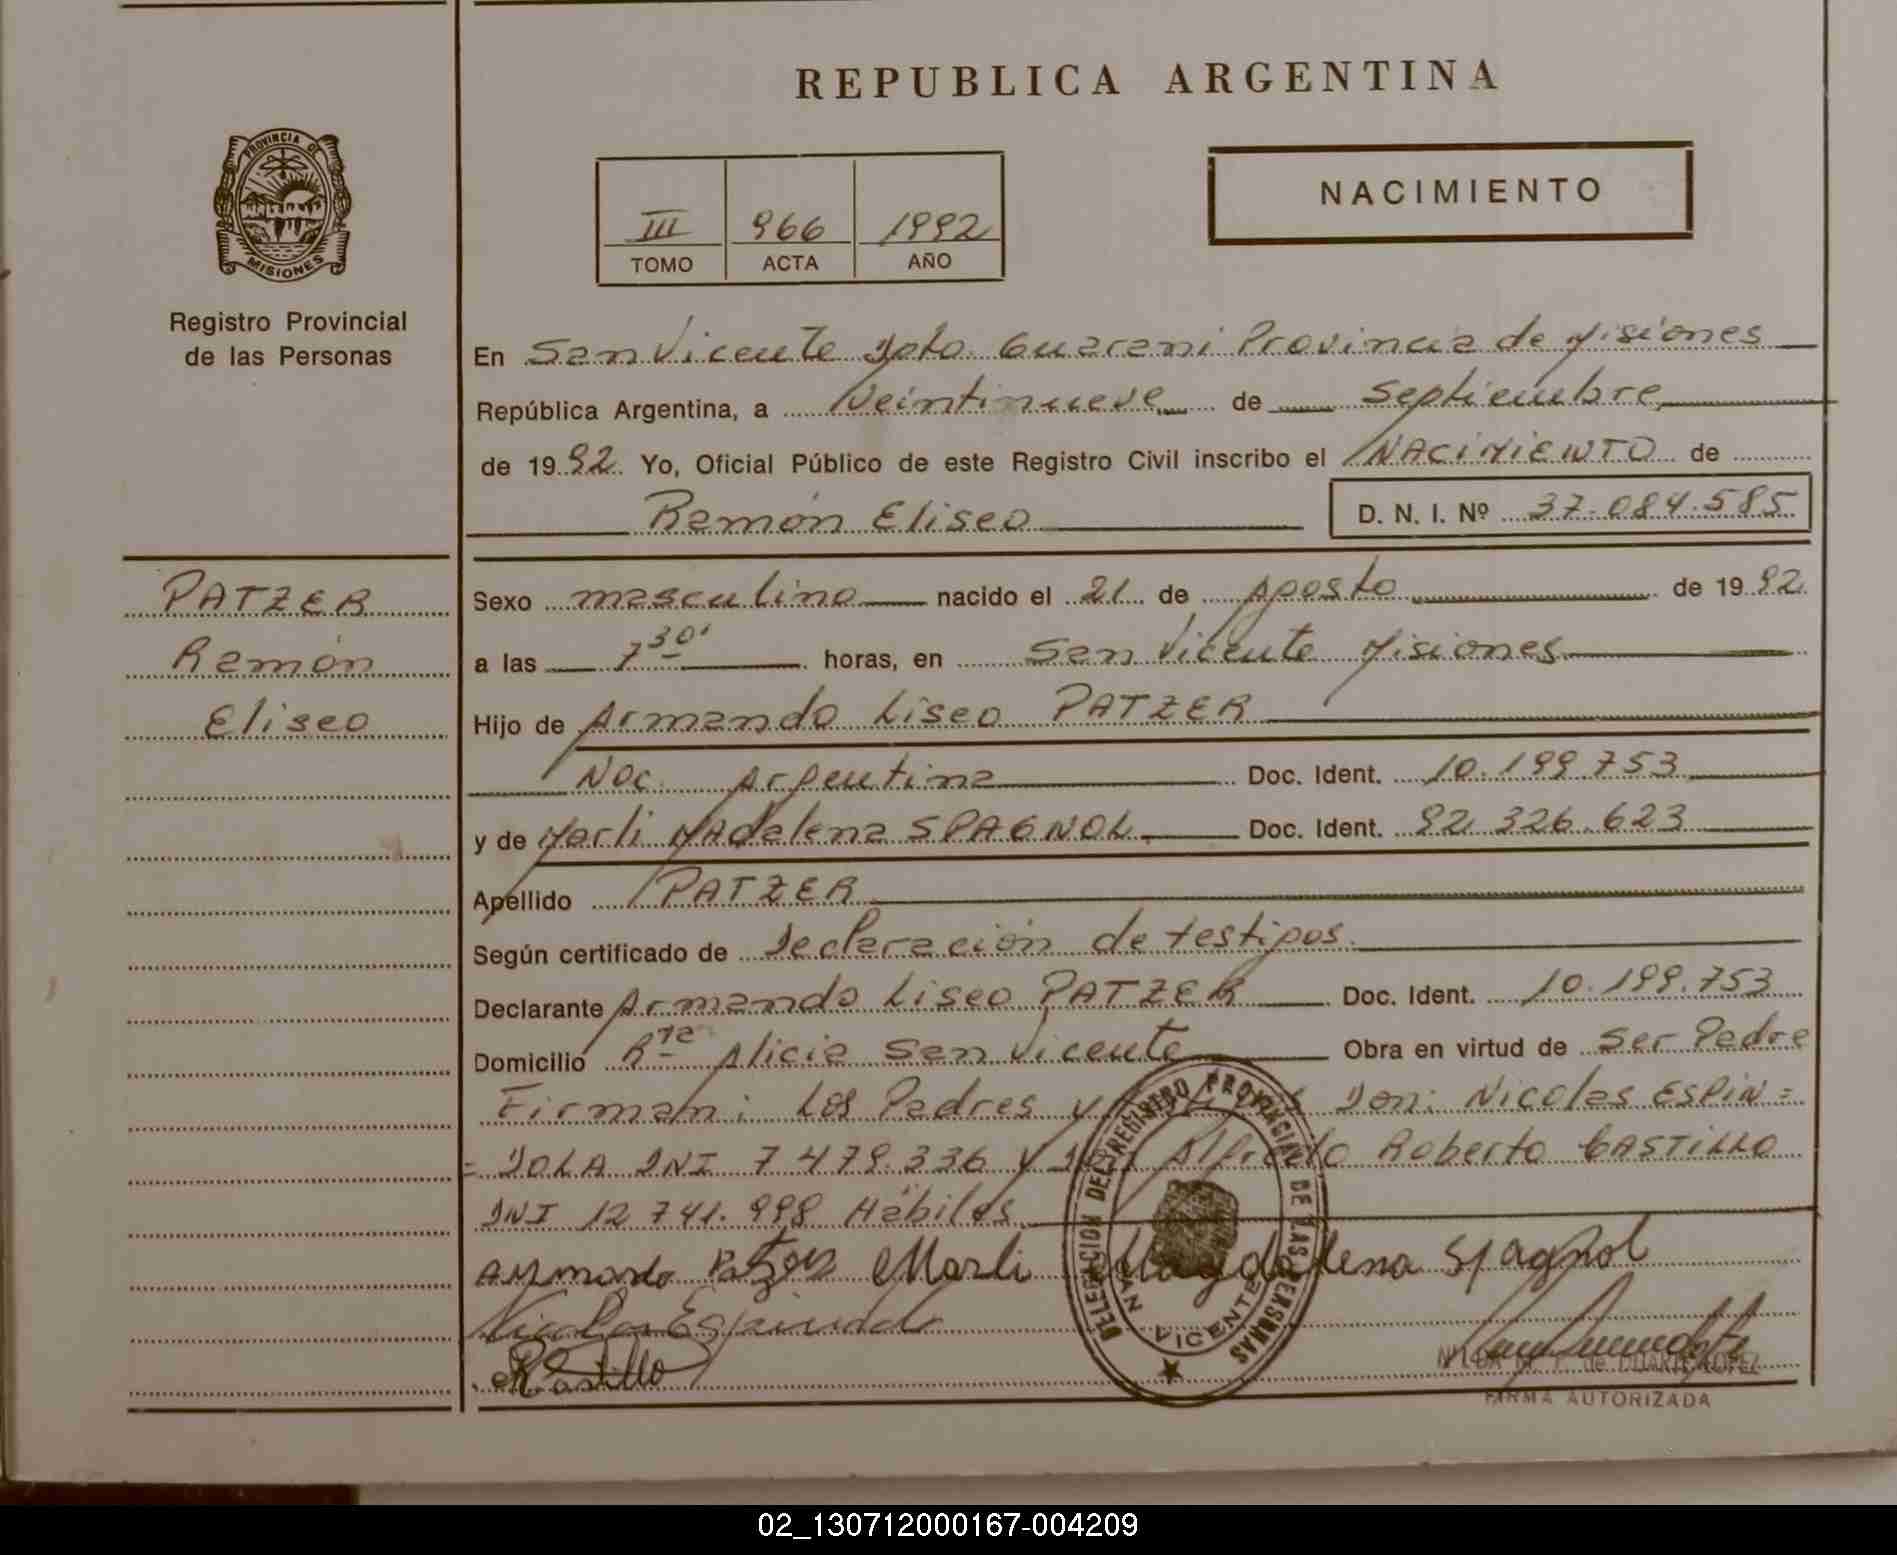 REPUBLICA ARGENTINA
PROVINCIA DE
MISIONES
Registro Provincial
de las Personas
III 966 1992
TOMO ACTA AÑO
NACIMIENTO
En San Vicente Dpto. Guarani Provincia de Misiones
República Argentina, a Veintinueve de Septiembre
de 1992. Yo, Oficial Público de este Registro Civil inscribo el NACIMIENTO de
Ramón Eliseo
D. N. I. Nº 37.084.585
PATZER
Ramón
Eliseo
Sexo masculino nacido el 21 de Agosto de 1992
a las 7 30' horas, en San Vicente Misiones
Hijo de Armando Liseo PATZER
Nac. Argentina Doc. Ident. 10.199.753
y de Marli MAdalena SPAGNOL Doc. Ident. 92.326.623
Apellido PATZER
Según certificado de Declaración de testigos.
Declarante Armando Liseo PATZER Doc. Ident. 10.199.753
Domicilio Rta Alicia San Vicente Obra en virtud de Ser Padre
Firman: Los Padres y Don: Nicolas ESPIN=
=DOLA DNI 7.479.336 y Alfredo Roberto CASTILLO
DNI 12.741.998 Hábiles
Armando Patzer Marli Magdalena Spagnol
Nicolas Espindola
R Castillo
DELEGACION DEL REGISTRO PROVINCIAL DE LAS PERSONAS
SAN VICENTE
NILDA de DUARTE LOPEZ
FIRMA AUTORIZADA
02_130712000167-004209